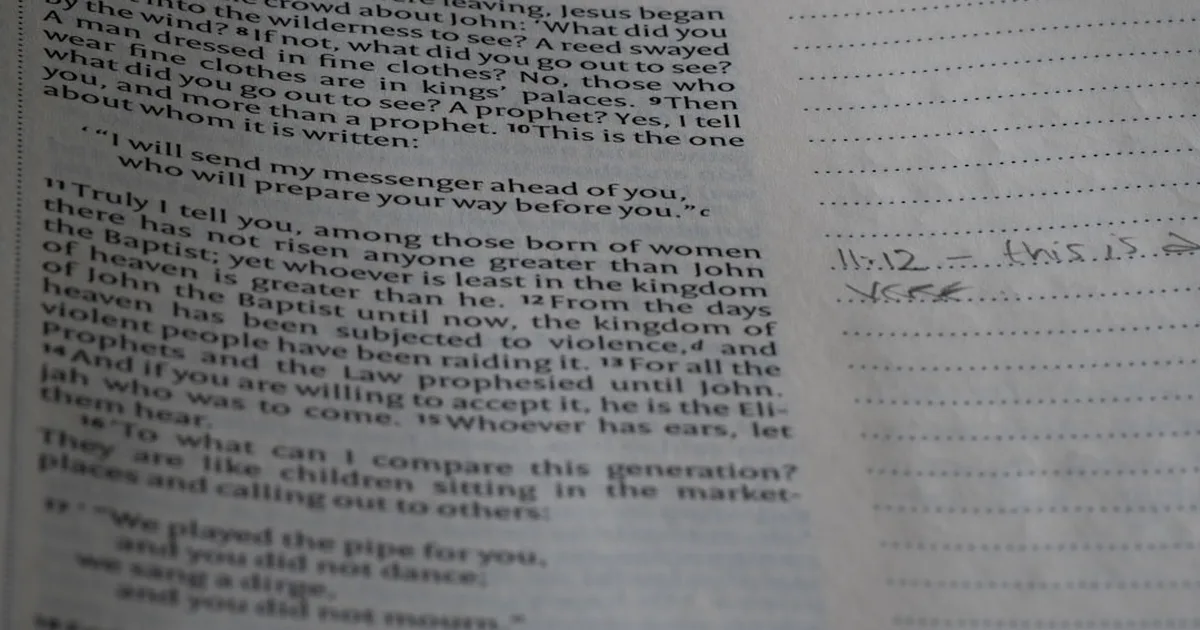 leaving, Jesus began
crowd about John: ‘What did you
into the wilderness to see? A reed swayed
by the wind? 8 If not, what did you go out to see?
A man dressed in fine clothes? No, those who
wear fine clothes are in kings’ palaces. 9 Then
what did you go out to see? A prophet? Yes, I tell
you, and more than a prophet. 10 This is the one
about whom it is written:
‘ “I will send my messenger ahead of you,
who will prepare your way before you.” c
11 Truly I tell you, among those born of women
there has not risen anyone greater than John
the Baptist; yet whoever is least in the kingdom
of heaven is greater than he. 12 From the days
of John the Baptist until now, the kingdom of
heaven has been subjected to violence, d and
violent people have been raiding it. 13 For all the
Prophets and the Law prophesied until John.
14 And if you are willing to accept it, he is the Eli-
jah who was to come. 15 Whoever has ears, let
them hear.
16 ‘To what can I compare this generation?
They are like children sitting in the market-
places and calling out to others:
17 ‘ “We played the pipe for you,
and you did not dance;
we sang a dirge,
and you did not mourn.”
11:12 – this is a
verse